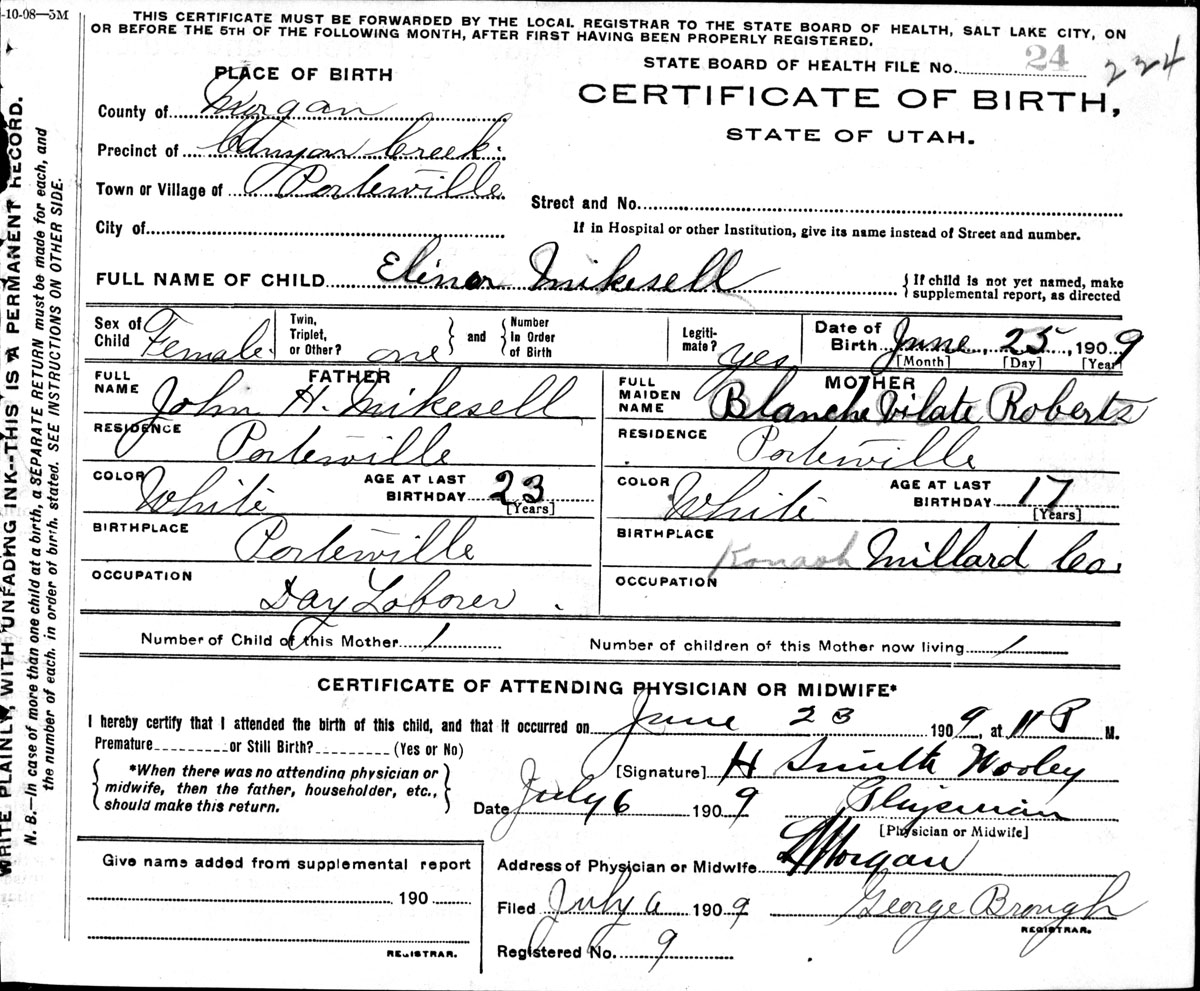 -10-08—5M
THIS CERTIFICATE MUST BE FORWARDED BY THE LOCAL REGISTRAR TO THE STATE BOARD OF HEALTH, SALT LAKE CITY, ON
OR BEFORE THE 5TH OF THE FOLLOWING MONTH, AFTER FIRST HAVING BEEN PROPERLY REGISTERED.
STATE BOARD OF HEALTH FILE NO. 24 224
PLACE OF BIRTH
CERTIFICATE OF BIRTH,
STATE OF UTAH.
County of Morgan
Precinct of Canyon Creek.
Town or Village of Porterville
Street and No.
City of
If in Hospital or other Institution, give its name instead of Street and number.
FULL NAME OF CHILD Elinor Mikesell
{If child is not yet named, make
supplemental report, as directed
Sex of Child Female.
Twin, Triplet, or Other? one } and { Number in Order of Birth
Legiti-mate? yes
Date of Birth June, 25, 1909
[Month] [Day] [Year]
FATHER
FULL NAME John H. Mikesell
MOTHER
FULL MAIDEN NAME Blanche Vilate Roberts
RESIDENCE Porterville
RESIDENCE Porterville
COLOR White AGE AT LAST BIRTHDAY 23
[Years]
COLOR White AGE AT LAST BIRTHDAY 17
[Years]
BIRTHPLACE Porterville
BIRTHPLACE Kanosh Millard Co.
OCCUPATION Day Laborer
OCCUPATION
Number of Child of this Mother 1
Number of children of this Mother now living 1
CERTIFICATE OF ATTENDING PHYSICIAN OR MIDWIFE*
I hereby certify that I attended the birth of this child, and that it occurred on June 23 1909, at 11 P M.
Premature or Still Birth? (Yes or No)
{ *When there was no attending physician or
midwife, then the father, householder, etc.,
should make this return. }
[Signature] H Smith Wooley
Date July 6 1909 Physician
[Physician or Midwife]
Address of Physician or Midwife Morgan
Filed July 6 1909 George Brough
REGISTRAR.
Registered No. 9
Give name added from supplemental report
190
REGISTRAR.
WRITE PLAINLY, WITH UNFADING INK--THIS IS A PERMANENT RECORD.
N. B.—In case of more than one child at a birth, a SEPARATE RETURN must be made for each, and
the number of each, in order of birth, stated. SEE INSTRUCTIONS ON OTHER SIDE.